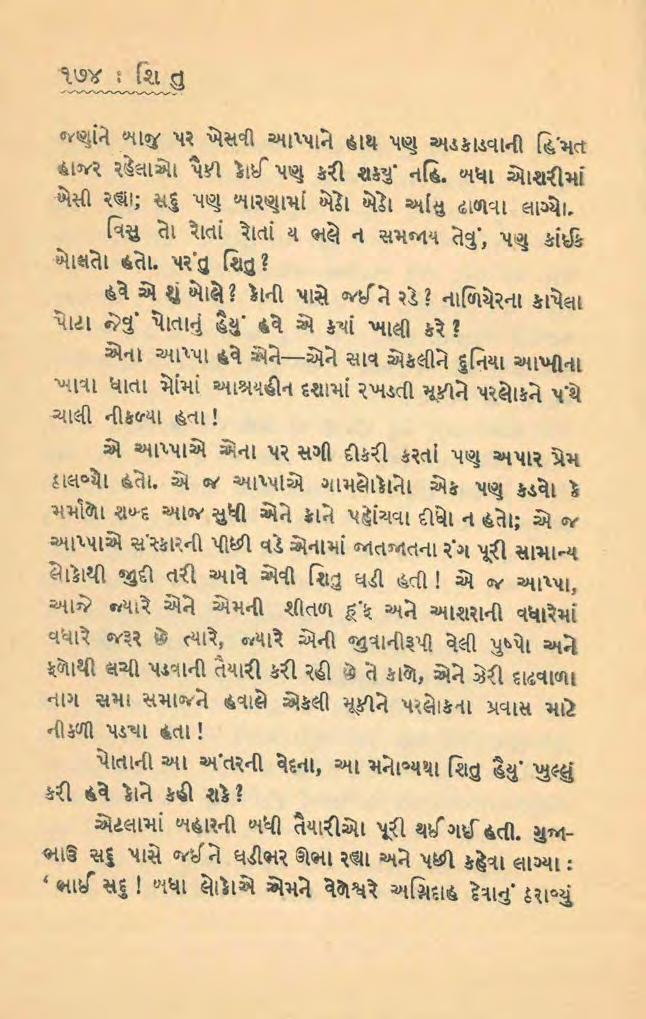 ૧૭૪ : શિ તુ
જણાંને બાજુ પર ખેસવી આપ્પાને હાથ પણ અડકાડવાની હિંમત
હાજર રહેલાઓ પૈકી કોઈ પણ કરી શક્યું નહિ. બધા ઓશરીમાં
બેસી રહ્યા; સદુ પણ બારણામાં બેઠો બેઠો આંસુ ઢાળવા લાગ્યો.
વિસુ તો રોતાં રોતાં ય ભલે ન સમજાય તેવું, પણ કાંઈક
બોલતો હતો. પરંતુ શિતુ?
હવે એ શું બોલે? કોની પાસે જઈને રડે? નાળિયેરના કાપેલા
પોટા જેવું પોતાનું હૈયું હવે એ ક્યાં ખાલી કરે?
એના આપ્પા હવે એને—એને સાવ એકલીને દુનિયા આખીના
ખાવા ધાતા મોંમાં આશ્રયહીન દશામાં રખડતી મૂકીને પરલોકને પંથે
ચાલી નીકળ્યા હતા!
એ આપ્પાએ એના પર સગી દીકરી કરતાં પણ અપાર પ્રેમ
ઠાલવ્યો હતો. એ જ આપ્પાએ ગામલોકોનો એક પણ કડવો કે
મર્માળો શબ્દ આજ સુધી એને કાને પહોંચવા દીધો ન હતો; એ જ
આપ્પાએ સંસ્કારની પીછી વડે એનામાં જાતજાતના રંગ પૂરી સામાન્ય
લોકોથી જુદી તરી આવે એવી શિતુ ઘડી હતી! એ જ આપ્પા,
આજે જ્યારે એને એમની શીતળ હૂંફ અને આશરાની વધારેમાં
વધારે જરૂર છે ત્યારે, જ્યારે એની જુવાનીરૂપી વેલી પુષ્પો અને
ફળોથી લચી પડવાની તૈયારી કરી રહી છે તે કાળે, એને ઝેરી દાઢવાળા
નાગ સમા સમાજને હવાલે એકલી મૂકીને પરલોકના પ્રવાસ માટે
નીકળી પડ્યા હતા!
પોતાની આ અંતરની વેદના, આ મનોવ્યથા શિતુ હૈયું ખુલ્લું
કરી હવે કોને કહી શકે?
એટલામાં બહારની બધી તૈયારીઓ પૂરી થઈ ગઈ હતી. ગુજા-
ભાઉ સદુ પાસે જઈને ઘડીભર ઊભા રહ્યા અને પછી કહેવા લાગ્યા :
‘ભાઈ સદુ! બધા લોકોએ એમને વેળેશ્વરે અગ્નિદાહ દેવાનું ઠરાવ્યું